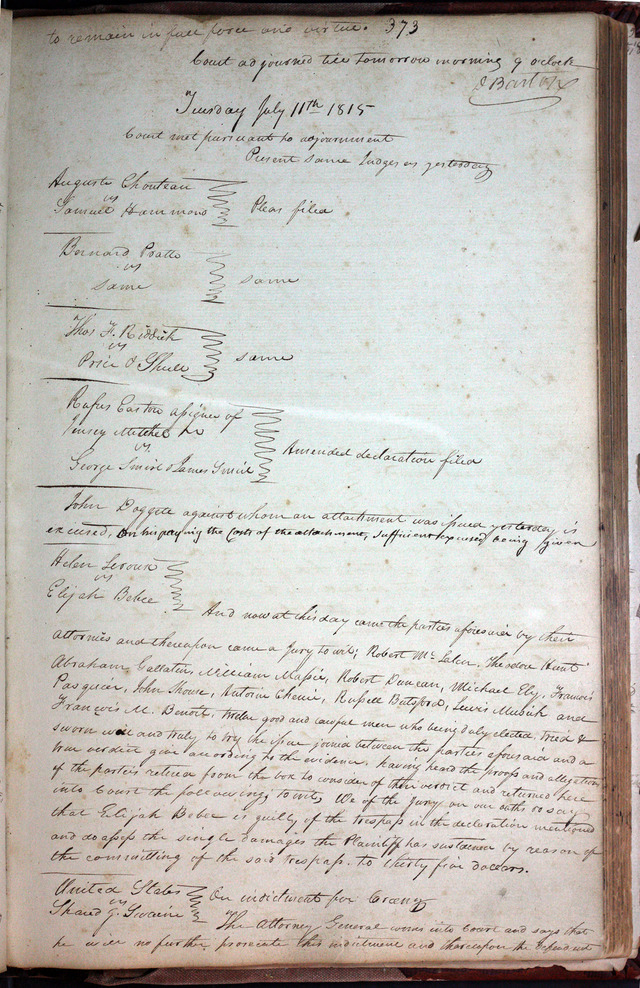 to remain in full force and virtue. 373
Court adjourned till tomorrow morning 9 oclock
J Barton
Tuesday July 11th 1815
Court met pursuant to adjournment
Present same Judges as yesterday
Auguste Chouteau
vs
Samuel Hammond
Pleas filed
Bernard Pratte
vs
same
same
Thos. F. Riddick
vs
Price &
same
Rufus Easton assignee of
Mitchel
vs
George Smirl & James Smirl
Amended declaration filed
John Doggett against whom an attachment was issued yesterday is
excused, on his paying the Costs of the attachment, sufficient excuse being given
Helen Leroux
vs
Elijah Bebee
And now at this day came the parties aforesaid by their
attornies and thereupon came a Jury towit; Robert Theodore Hunt
Abraham Gallatin, William Massie, Robert Duncan, Michael Ely, Francois
Pasquier, John Antoine Chenie, Russell Botsford, Lewis Musick and
Francois M. Benoit, twelve good and lawful men who being duly elected, tried &
sworn well and truly to try the issue joined between the parties aforesaid and a
true verdict give according to the evidence, having heard the proofs and allegations
of the parties retired from the box to consider of their verdict and returned here
into Court the following; towit, We of the Jury on our oaths do say
that Elijah Bebee is guilty of the trespass in the declaration mentioned
and do assess the single damages the Plaintiff has sustained by reason of
the committing of the said trespass. to thirty five dollars.
United States
vs
Swaine
On indictment for
The Attorney General comes into Court and says that
he will no further prosecute this indictment and thereupon the defendant